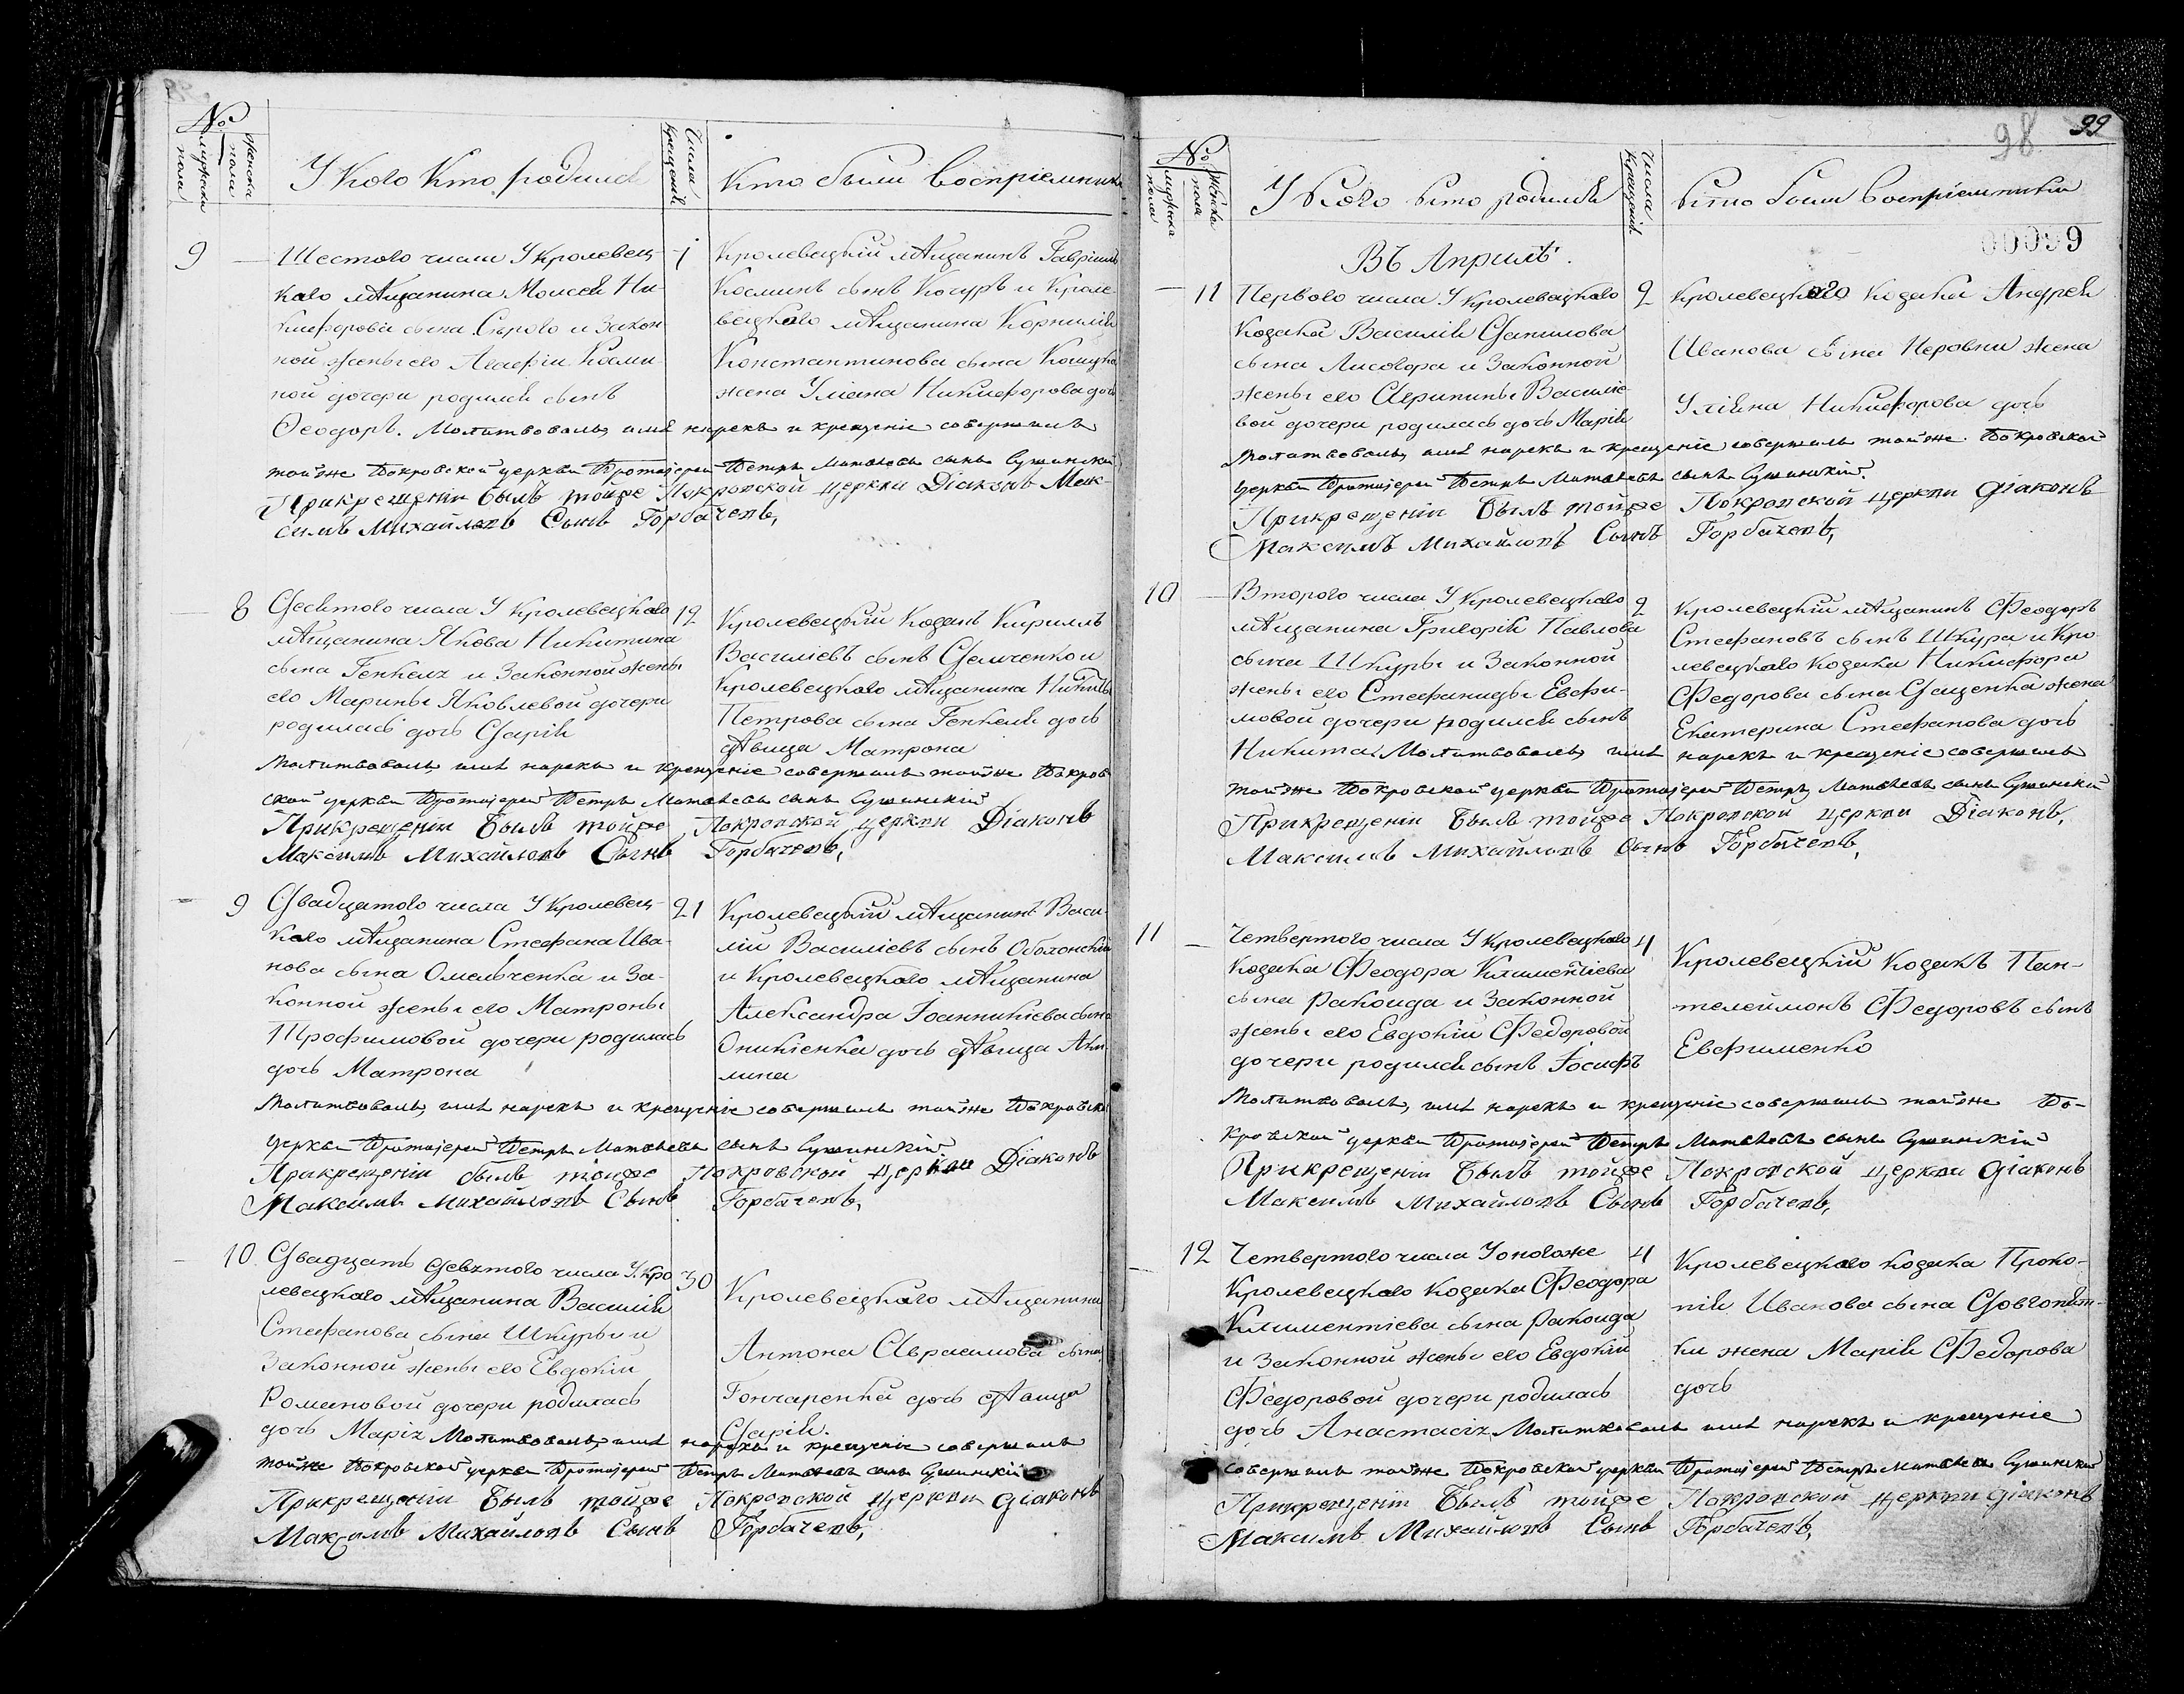 №
мужска пола
женска пола
У кого кто родился
Числа крещенія
Кто были воспріемники
9
Шестого числа У Кролевец-
каго мѣщанина Моисея Ни-
кифорова сына Сѣрого и закон
ной жены его Агафіи Косми-
ной дочери родился сынъ
Ѳеодоръ. Молитвовалъ, имя нарекъ и крещеніе совершилъ
тойже Покровской церкви Протоіерей Петръ Матвѣевъ сынъ Сушинскій
При крещеніи былъ тойже Покровской церкви Діаконъ Мак-
симъ Михайловъ Сынъ Горбачевъ,
7
Кролевецкій мѣщанинъ Гавріилъ
Косминъ сынъ Кочуръ и Кроле-
вецкаго мѣщанина Корнилія
Константинова сына
жена Уліана Никифорова дочь
8
Десятого числа У Кролевецкаго
мѣщанина Якова Никитина
сына Генкеля и Законной жены
его Марины Яковлевой дочери
родилась дочь Дарія
Молитвовалъ, имя нарекъ и крещеніе совершилъ тойже Покров
ской церкви Протоіерей Петръ Матвѣевъ сынъ Сушинскій
При крещеніи былъ тойже Покровской церкви Діаконъ
Максимъ Михайловъ Сынъ Горбачевъ,
12
Кролевецкій Козакъ Кириллъ
Василіевъ сынъ Демченко и
Кролевецкаго мѣщанина Никиты
Петрова сына Генкеля дочь
дѣвица Матрона
9
Двадцатого числа У Кролевец-
каго мѣщанина Стефана Ива-
нова сына Омельченка и За-
конной жены его Матроны
Трофимовой дочери родилась
дочь Матрона
Молитвовалъ, имя нарекъ и крещеніе совершилъ тойже Покровской
церкви Протоіерей Петръ Матвѣевъ сынъ Сушинскій
При крещеніи былъ тойже Покровской церкви Діаконъ
Максимъ Михайловъ Сынъ Горбачевъ,
21
Кролевецкій мѣщанинъ Васи-
лій Василіевъ сынъ Оболонскій
и Кролевецкаго мѣщанина
Александра Іоанникіева сына
Оникіенка дочь дѣвица Аки
лина
10
Двадцать девятого числа У Кро
левецкаго мѣщанина Василія
Стефанова сына Шкуры и
Законной жены его Евдокіи
Романовой дочери родилась
дочь Марія Молитвовалъ, имя нарекъ и крещеніе совершилъ
тойже Покровской церкви Протоіерей Петръ Матвѣевъ сынъ Сушинскій
При крещеніи былъ тойже Покровской церкви Діаконъ
Максимъ Михайловъ Сынъ Горбачевъ,
30
Кролевецкаго мѣщанина
Антона Авраамова сына
Гончаренка дочь дѣвица
Дарія.
98
99
00099
№
мужска пола
женска пола
У кого кто родился
Числа крещенія
Кто были воспріемники
Въ Априлѣ.
11
Первого числа У Кролевецкаго
Козака Василія Данилова
сына Лисовора и Законной
жены его Агрипины Василіе
вой дочери родилась дочь Марія
Молитвовалъ, имя нарекъ и крещеніе совершилъ тойже Покровской
церкви Протоіерей Петръ Матвѣевъ сынъ Сушинскій.
При крещеніи былъ тойже Покровской церкви Діаконъ
Максимъ Михайловъ Сынъ Горбачевъ,
2
Кролевецкаго Козака Андрея
Иванова сына Неровни жена
Уліяна Никифорова дочь
10
Второго числа У Кролевецкаго
мѣщанина Григорія Павлова
сына Шкуры и Законной
жены его Стефаниды Евфи-
мовой дочери родился сынъ
Никита Молитвовалъ, имя нарекъ и крещеніе совершилъ
тойже Покровской церкви Протоіерей Петръ Матвѣевъ сынъ Сушинскій
При крещеніи былъ тойже Покровской церкви Діаконъ,
Максимъ Михайловъ Сынъ Горбачевъ,
2
Кролевецкій мѣщанинъ Феодоръ
Стефановъ сынъ Шкура и Кро-
левецкаго Козака Никифора
Федорова сына Даценка жена
Екатерина Стефанова дочь
11
Четвертого числа У Кролевецкаго
Козака Феодора Климентіева
сына Ракоида и Законной
жены его Евдокіи Федоровой
дочери родился сынъ Іосифъ
Молитвовалъ, имя нарекъ и крещеніе совершилъ тойже По-
кровской церкви Протоіерей Петръ Матвѣевъ сынъ Сушинскій
При крещеніи былъ тойже Покровской церкви Діаконъ
Максимъ Михайловъ Сынъ Горбачевъ,
4
Кролевецкій Козакъ Пан-
телеймонъ Федоровъ сынъ
Евфименко
12
Четвертого числа У оногоже
Кролевецкаго Козака Феодора
Климентіева сына Ракоида
и Законной жены его Евдокіи
Федоровой дочери родилась
дочь Анастасія Молитвовалъ имя нарекъ и крещеніе
совершилъ тойже Покровской церкви Протоіерей Петръ Матвѣевъ Сушинскій
При крещеніи былъ тойже Покровской церкви Діаконъ
Максимъ Михайловъ Сынъ Горбачевъ,
4
Кролевецкаго Козака Проко-
пія Иванова сына
жена Марія Федорова
дочь